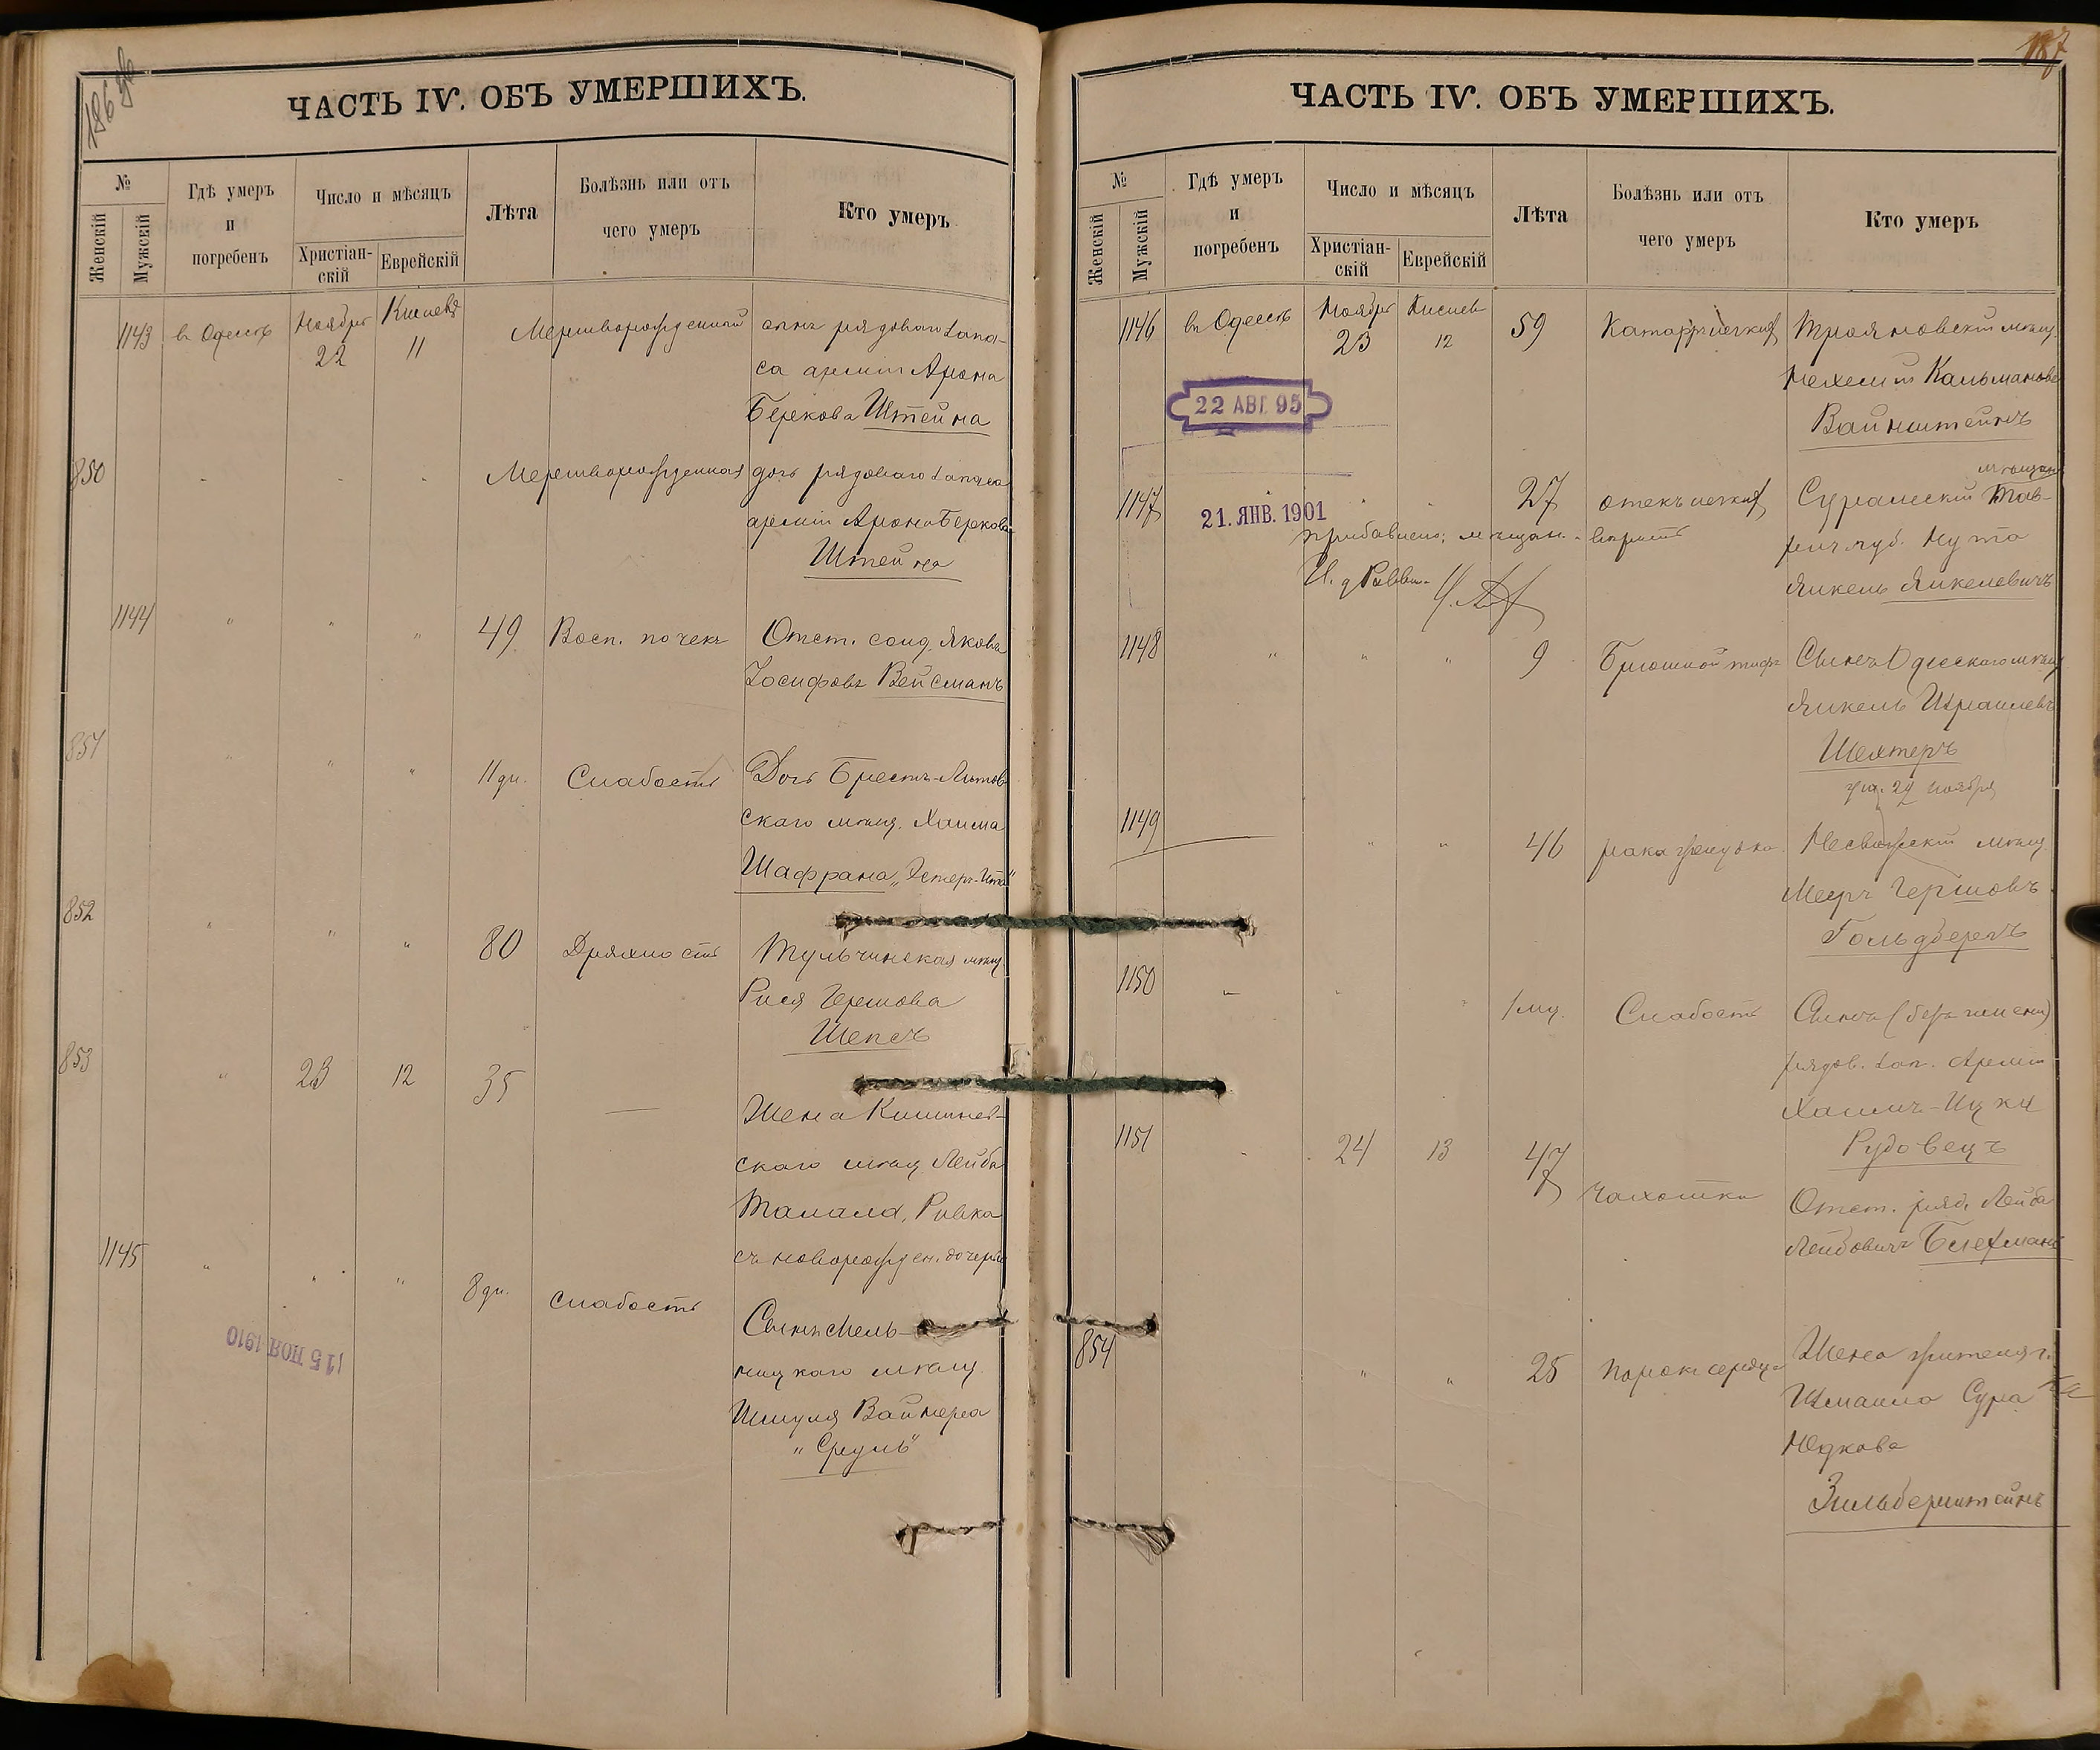 186 об
ЧАСТЬ IV. ОБЪ УМЕРШИХЪ.
№
Женскій
Мужскій
Гдѣ умеръ
и
погребенъ
Число и мѣсяцъ
Христіан-
скій
Еврейскій
Лѣта
Болѣзнь или отъ
чего умеръ
Кто умеръ
1143 въ Одессѣ Ноября 22 Кислева 11 Мертворожденный сынъ рядового запа-
са арміи Арона
Берекова Штейна
850 " " " Мертворожденная дочь рядоваго запаса
арміи Арона Берекова
Штейна
1144 " " " 49 Восп. почекъ Отст. солд. Яковъ
Іосифовъ Вейсманъ
851 " " " 11 дн. Слабость Дочь Брестъ-Литов-
скаго мѣщ. Хаима
Шафрана „Эстеръ-Ита"
852 " " " 80 Дряхлость Тульчинская мѣщ.
Рися Гершова
Шепсъ
853 " 23 12 35 — Жена Кишинев-
скаго мѣщ Лейба
Талала, Ривка
съ новорожден. дочерью
1145 " " " 8 дн. Слабость Сынъ Хмель-
ницкаго мѣщ.
Шмуля Вайнера
„Сруль"
15 НОЯ 1910
187
ЧАСТЬ IV. ОБЪ УМЕРШИХЪ.
№
Женскій
Мужскій
Гдѣ умеръ
и
погребенъ
Число и мѣсяцъ
Христіан-
скій
Еврейскій
Лѣта
Болѣзнь или отъ
чего умеръ
Кто умеръ
1146 въ Одессѣ Ноября 23 Кислев 12 59 Катарръ легкихъ Трояновскій мѣщ.
Кальманов
Вайнштейнъ
22 АВГ 95
мѣщан
1147 " " 27 отекъ легкихъ Сурамскій Тав-
рич. губ. Нута
Янкель Янкелевичъ
21. ЯНВ. 1901
прибавлено: мѣщан. - вѣрить
И. д Равви.
1148 " " " 9 Брюшной тифъ Сынъ Одесскаго мѣщ
Янкель Израилевъ
Шехтеръ
ум. 24 ноября
1149 — " " 46 рака желудка Несвижскій мѣщ.
Мееръ Гершовъ
Гольдбергъ
1150 " " " 1 мц. Слабость Сынъ (безъ имени)
рядов. зап. Арміи
Хаимъ-Ицки
Рудовецъ
1151 " 24 13 47 Чахотка Отст. ряд. Лейба
Лейбовичъ Блехманъ
854 " " 25 порокъ сердца Жена жителя г.
Измаила Сура
Юдкова
Зильберштейнъ